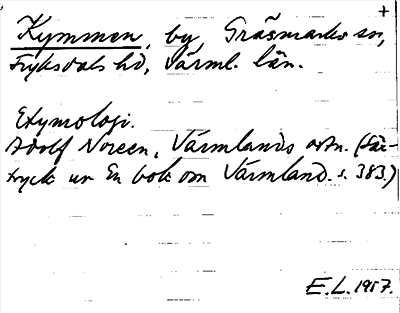 +
Kymmen, by Gräsmarks sn,
Fryksdals hd, Värml. län.
Etymologi.
Adolf Noreen, Värmlands ortn. (Sär-
tryck ur En bok om Värmland. s. 383.)
E.L. 1957.